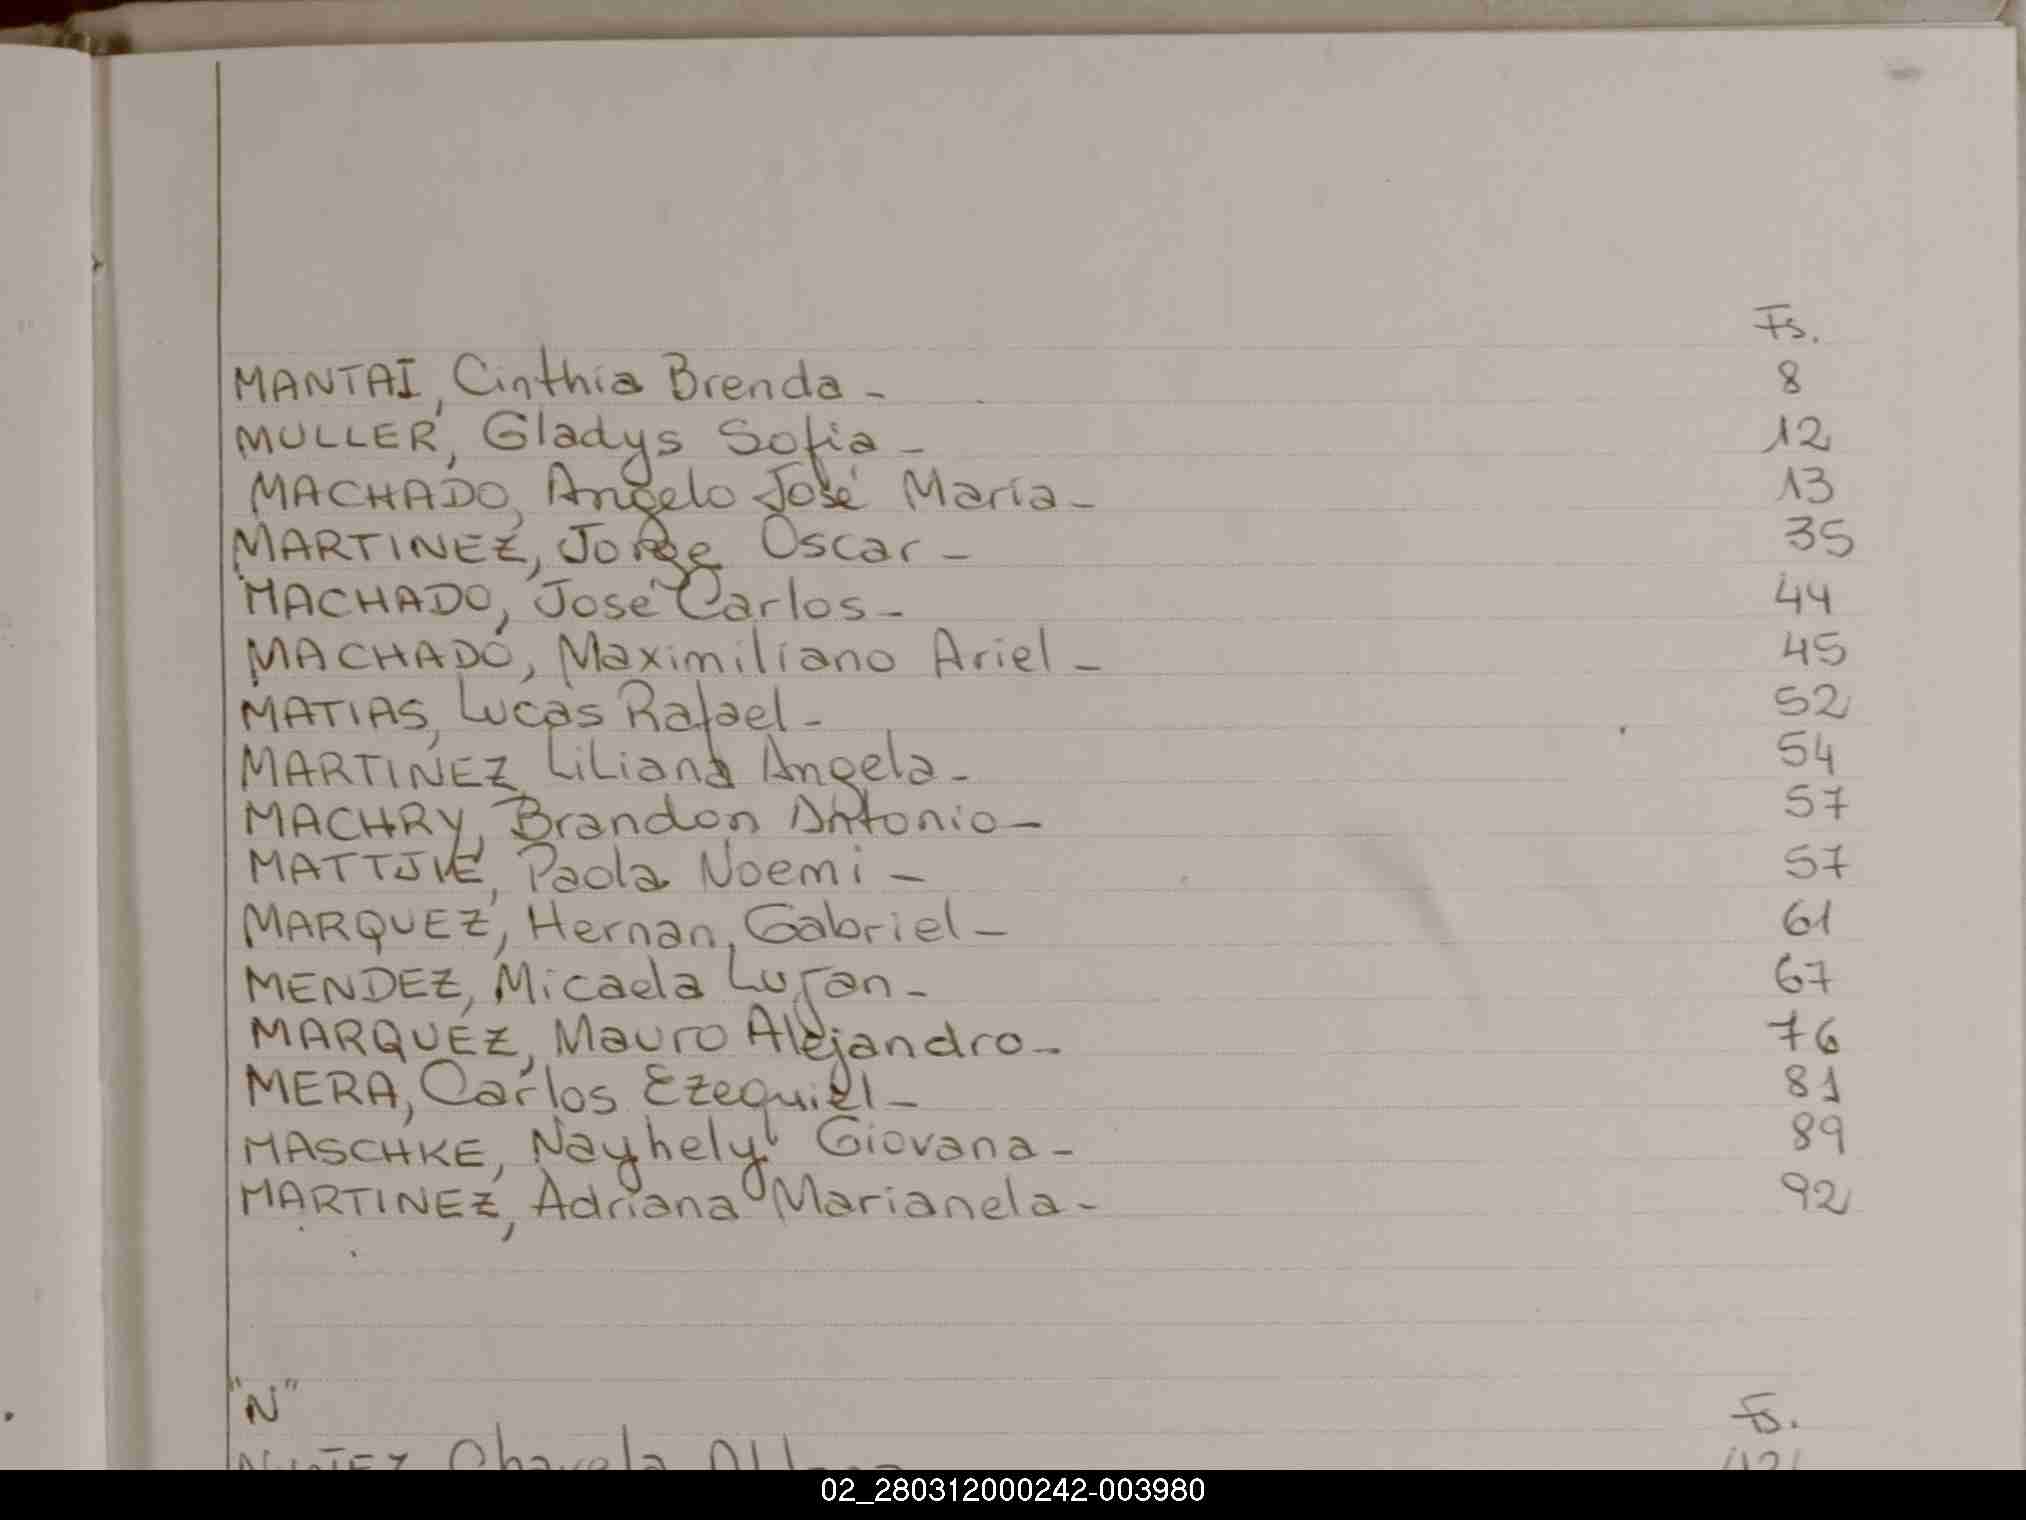 Fs.
MANTAI, Cinthia Brenda - 8
MULLER, Gladys Sofia - 12
MACHADO, Angelo José María - 13
MARTINEZ, Jorge Oscar - 35
MACHADO, José Carlos - 44
MACHADO, Maximiliano Ariel - 45
MATIAS, Lucas Rafael - 52
MARTINEZ, Liliana Angela - 54
MACHRY, Brandon Antonio - 57
MATTJIE, Paola Noemi - 57
MARQUEZ, Hernan, Gabriel - 61
MENDEZ, Micaela Lujan - 67
MARQUEZ, Mauro Alejandro - 76
MERA, Carlos Ezequiel - 81
MASCHKE, Nayhely Giovana - 89
MARTINEZ, Adriana Marianela - 92
"N" Fs.
02_280312000242-003980